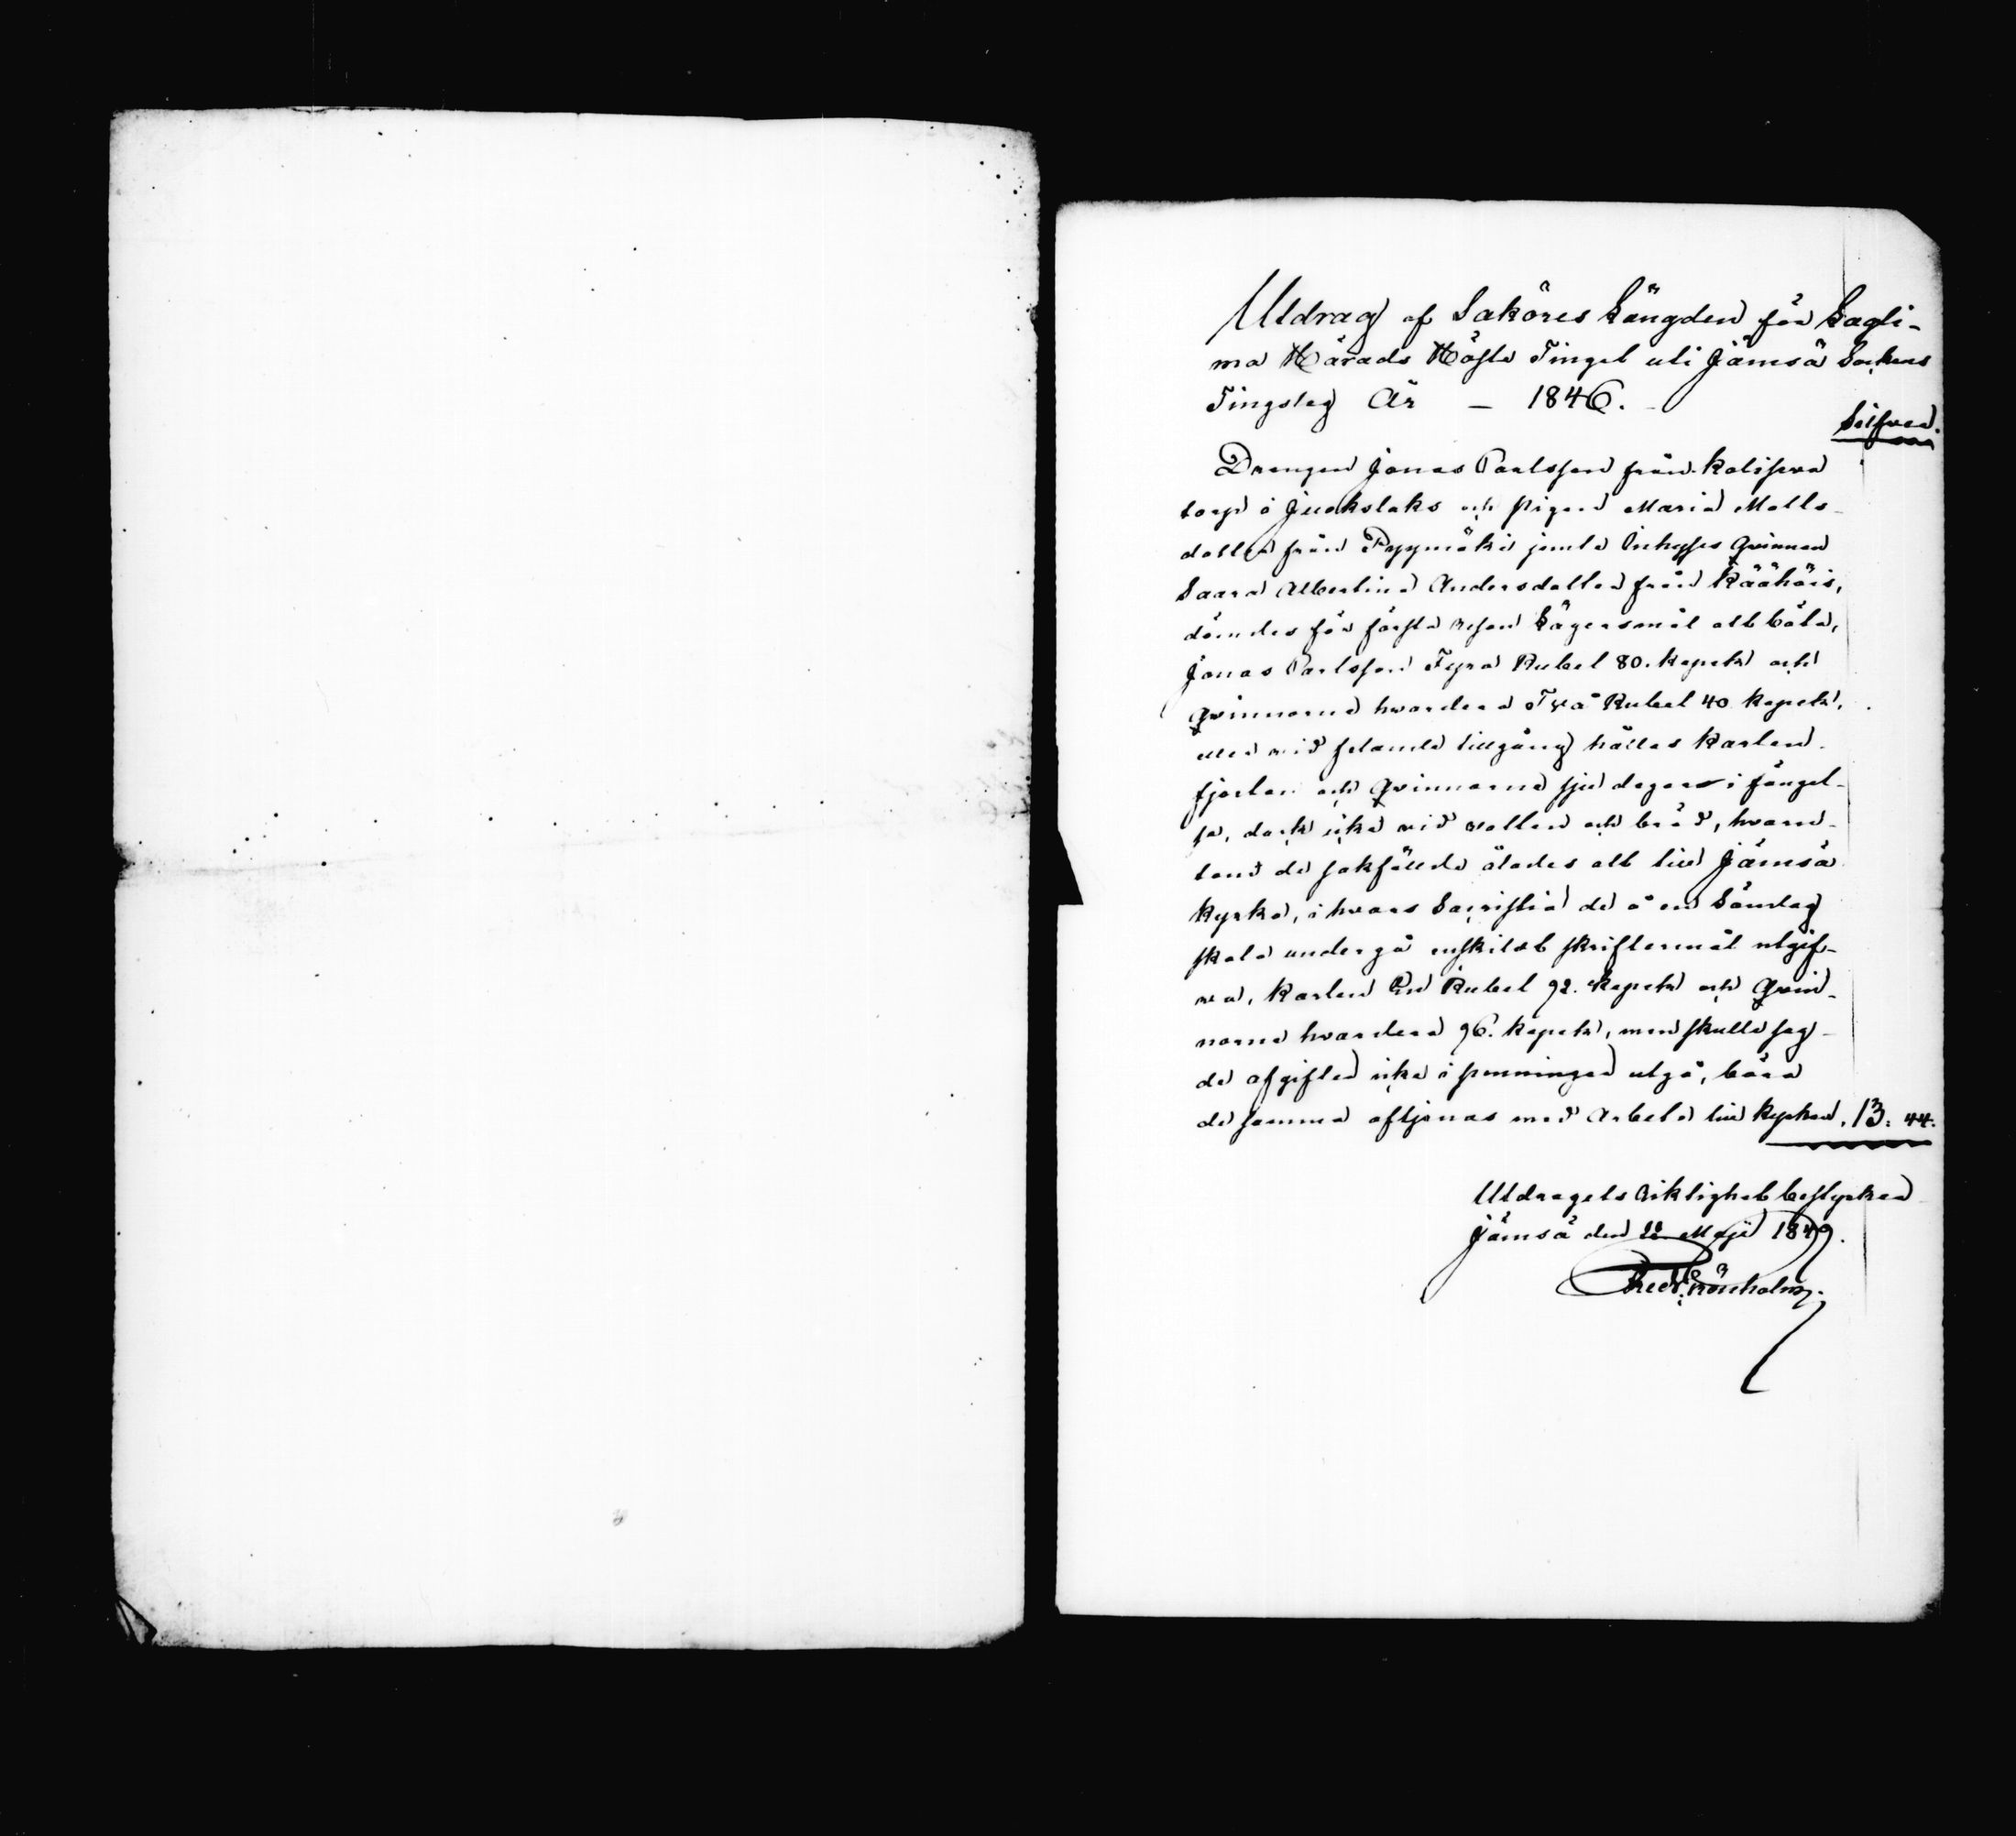 Utdrag af Saköres Längden för Lagli-
ma Härads Höste Tinget uti Jämsä Sockens
Tingslag År – 1846.
Silfver.
Drengen Jonas Paulsson från
torp å Juokslaks och pigan Maria Matts-
dotter från Pyymäki jemte Inhyses qvinnan
Saara Albertina Andersdotter från Käähöis,
dömdes för första resan Lägersmål att böta,
Jonas Paulsson Fyra Rubel 80. kopek och
qvinnorna hvardera Två Rubel 40. kopek,
eller vid felande tillgång hålles karlen
fjorton och qvinnorna sju dagar i fängel-
se, dock icke vid vatten och bröd, hvaru-
tom de sakfällde ålades att till Jämsä
kyrka, i hvars Sacristia de å en Söndag
skola undergå enskildt skriftermål utgif-
va, karlen En Rubel 92. kopek och qvin-
norna hvardera 96. kopek, men skulle sag-
de afgifter icke i penningar utgå, böra
de samma aftjenas med arbete till kyrkan. 13. 44.
Utdragets riktighet bestyrker
Jämsä den 22 Maji 1849.
Fredr. Grönholm.